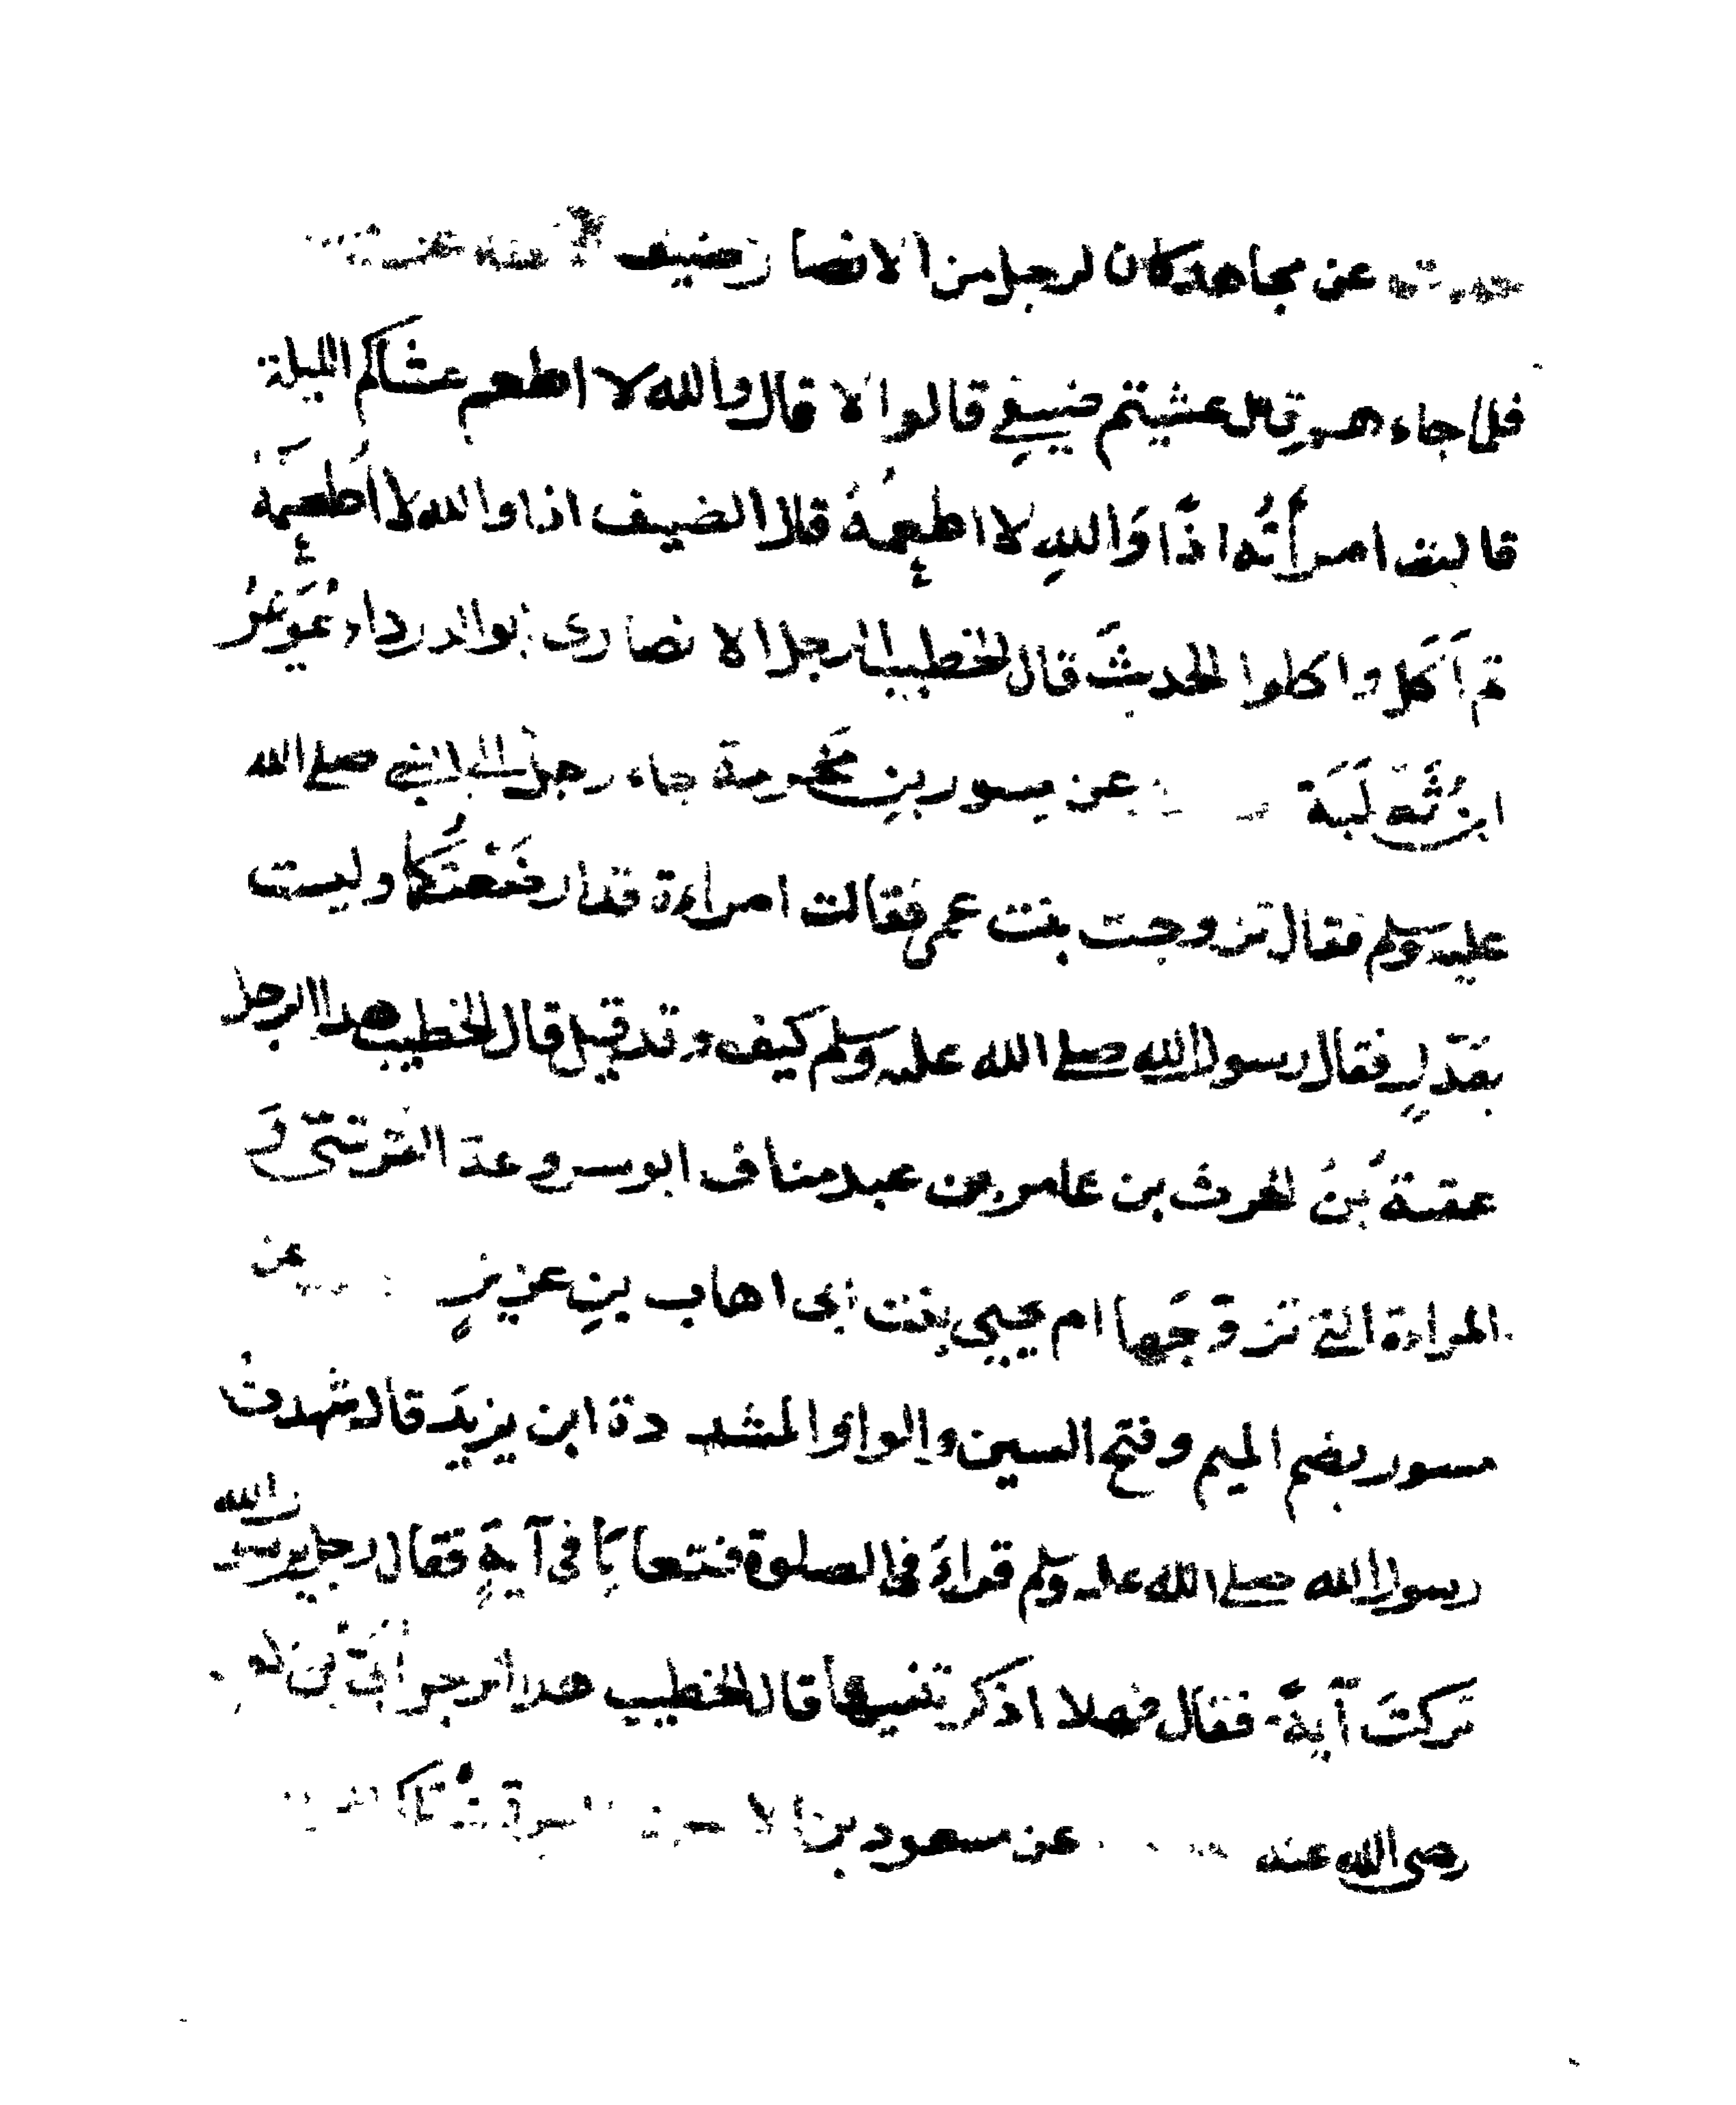 عن مجاهد كان لرجل من الانصار ضيف
فلما جاء هو قال عشيتم ضيفي قالوا لا قال والله لا اطعم عشاكم الليلة
قالت امرأتُه اذًا وَاللهِ لا اطعمُهُ قال الضيف اذا والله لا اَطعَمُهُ
ثم اَكَل واكلوا الحديثَ قال الخطيب الرجل الانصارى ابوالدرداء عُوَيْمرُ
ابنُ ثَعْلَبَة عن مسور بنِ مَخْرمة جاء رجلٌ الى النبي صلى الله
عليه وسلم فقال تزوجت بنت عمى فقالت امراءة قد ارضَعْتُكما وليست
بعَدْلٍ فقال رسول الله صلى الله عليه وسلم كيف وقد قيل قال الخطيب هذا الرجل
عقبةُ بنُ الحرث بن عامر بن عبد مناف ابو سروعة القرشىّ وَ
المراءة التي تزوّجَها ام يحيى بنت ابى اهاب بنِ عزيزٍ عن
مسور بضم الميم وفتح السين والواو المشددة ابن يزيدَ قال شهدتُ
رسول الله صلى الله عليه وسلم قراءَ في الصلوة فتعايَا فى آيةٍ فقال رجل يرسول الله
تركتَ آيةً فقال فهلا اذكرتنيها قال الخطيب هذا الرجل اُبَىّ بن كعب
رضى الله عنه عن مسعود بن الا